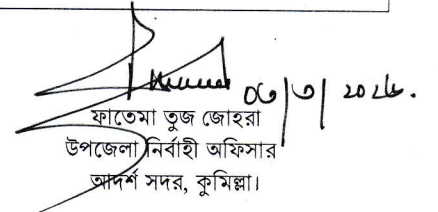 ০৩/৩/২০২৬.
ফাতেমা তুজ জোহরা
উপজেলা নির্বাহী অফিসার
আদর্শ সদর, কুমিল্লা।